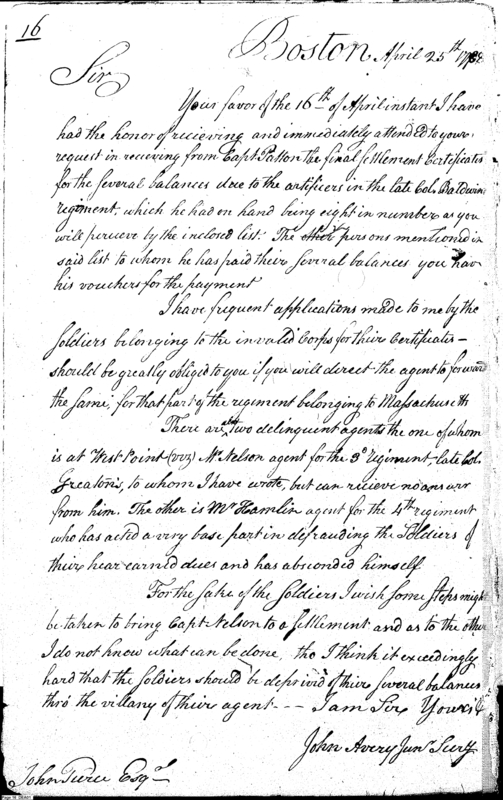 16
Boston April 25th
Sir
Your favor of the 16th of April instant I have
had the honor of recieving and immediately attended to your
request in recieving from Capt Patton the final settlement Certificates
for the several balances due to the artificers in the late Col. Baldwins
regiment, which he had on hand being eight in number as you
will percieve by the inclosed list. The persons mentioned in
said list to whom he has paid their several balances you have
his vouchers for the payment
I have frequent applications made to me by the
Soldiers belonging to the invalid Corps for their Certificates –
should be greatly obliged to you if you will direct the agent to forward
the same, for that part of the regiment belonging to Massachusetth
There are two delinquent agents the one of whom
is at West Point (viz) Mr. Nelson agent for the 3d regiment, late Col.
Greatons, to whom I have wrote, but can recieve no answer
from him. The other is Mr Hamlin agent for the 4th regiment
who has acted a very base part in defrauding the Soldiers of
their hear earned dues and has absconded himself
For the sake of the Soldiers I wish some steps might
be taken to bring Capt. Nelson to a settlement and as to the other
I do not know what can be done, tho I think it exceedingly
hard that the soldiers should be deprived of their several balances
thro the villany of their agent - - - I am Sir Yours &
John Avery Junr Secry
John Pierce Esqr